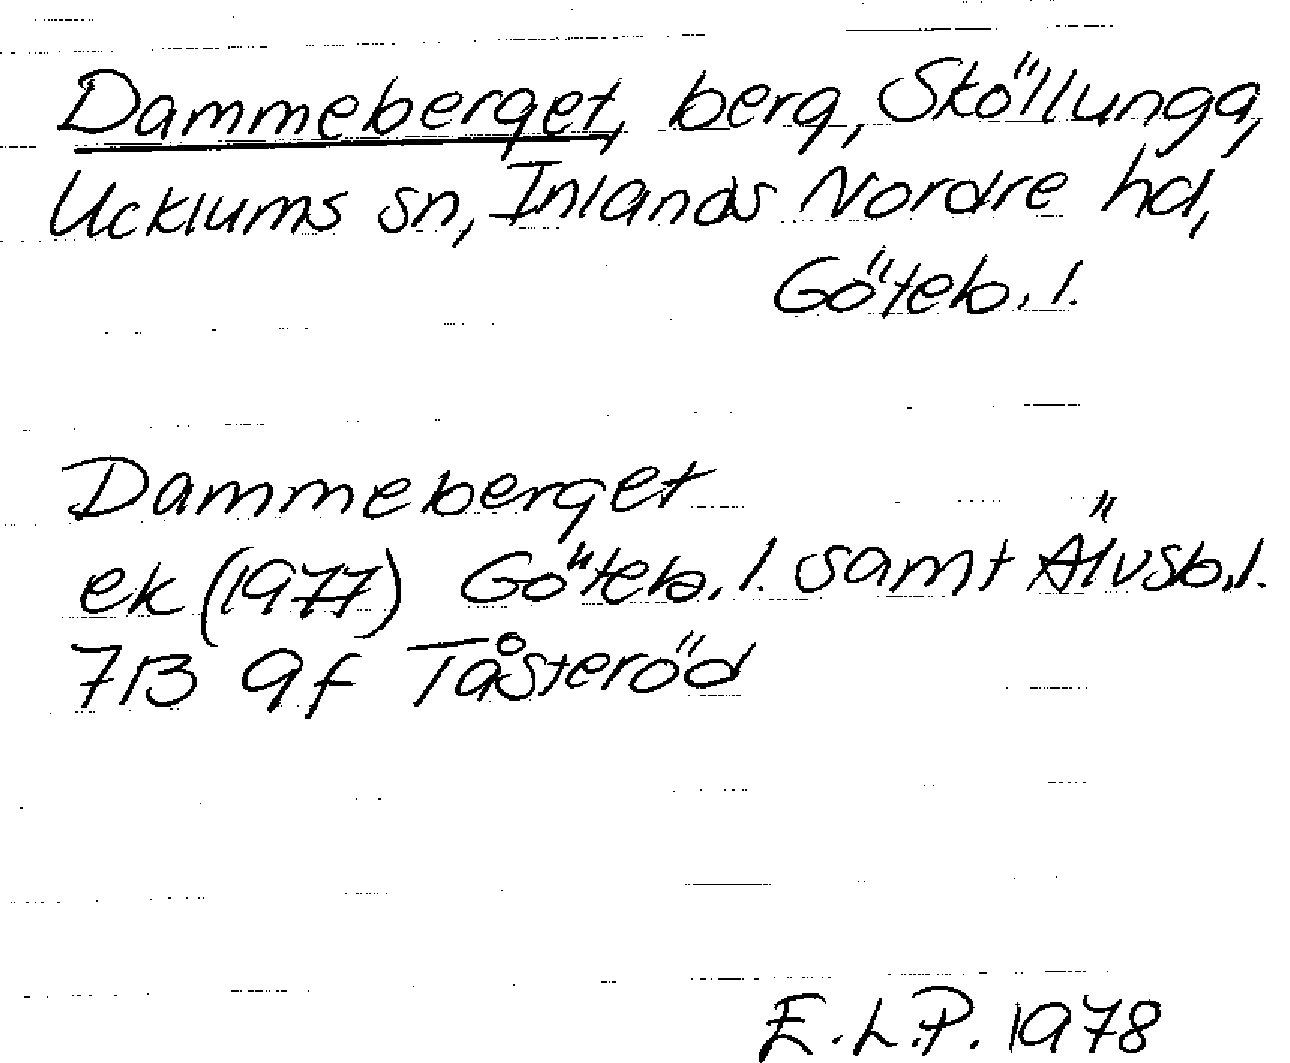 Dammeberget, berg, Sköllunga,
Ucklums sn, Inlands Nordre hd,
Göteb. l.
Dammeberget
ek (1977) Göteb. l. samt Älvsb. l.
7B 9f Tåsteröd
E.L.P. 1978